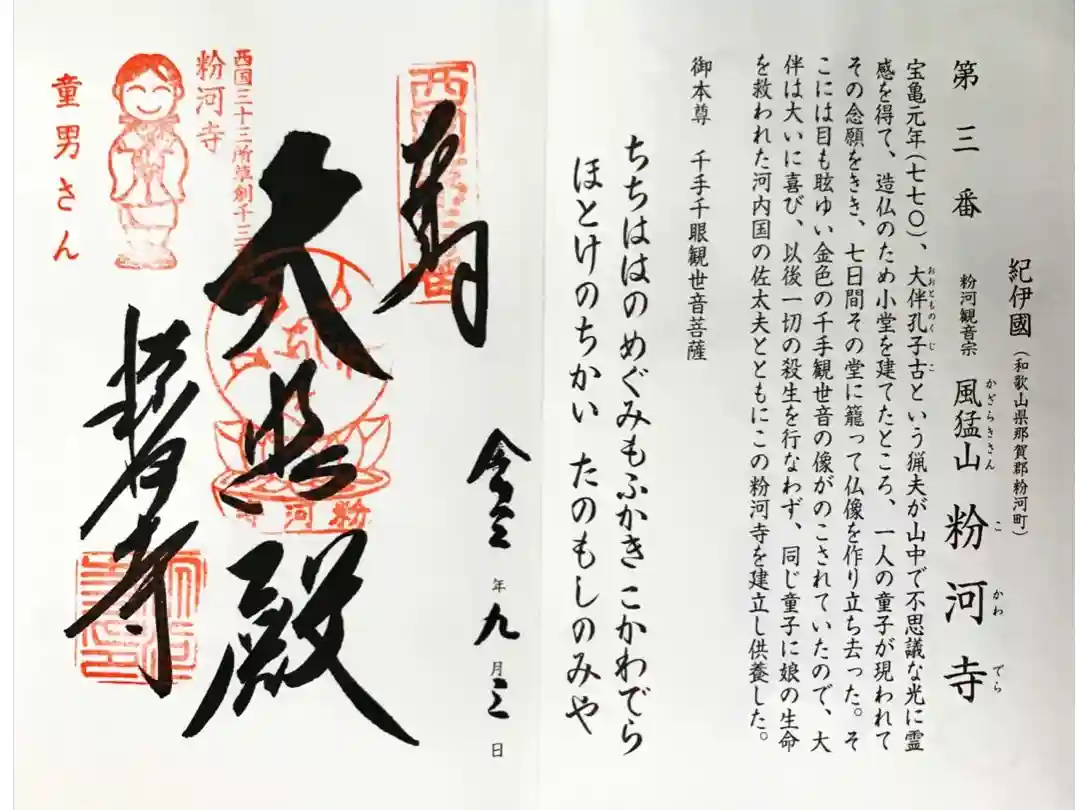 紀伊國(和歌山県那賀郡粉河町)
第三番 粉河観音宗 風猛山 粉河寺
かざらきさん こかわでら
宝亀元年(七七〇)、大伴孔子古という猟夫が山中で不思議な光に霊
おおとものくじこ
感を得て、造仏のため小堂を建てたところ、一人の童子が現われて
その念願をきき、七日間その堂に籠って仏像を作り立ち去った。そ
こには目も眩ゆい金色の千手観世音の像がのこされていたので、大
伴は大いに喜び、以後一切の殺生を行なわず、同じ童子に娘の生命
を救われた河内国の佐太夫とともにこの粉河寺を建立し供養した。
御本尊 千手千眼観世音菩薩
ちちははの めぐみもふかき こかわでら
ほとけのちかい たのもしのみや
令三年九月三日
奉拝
大悲殿
粉河寺
西国三十三所草創千三
粉河寺
童男さん
粉河寺